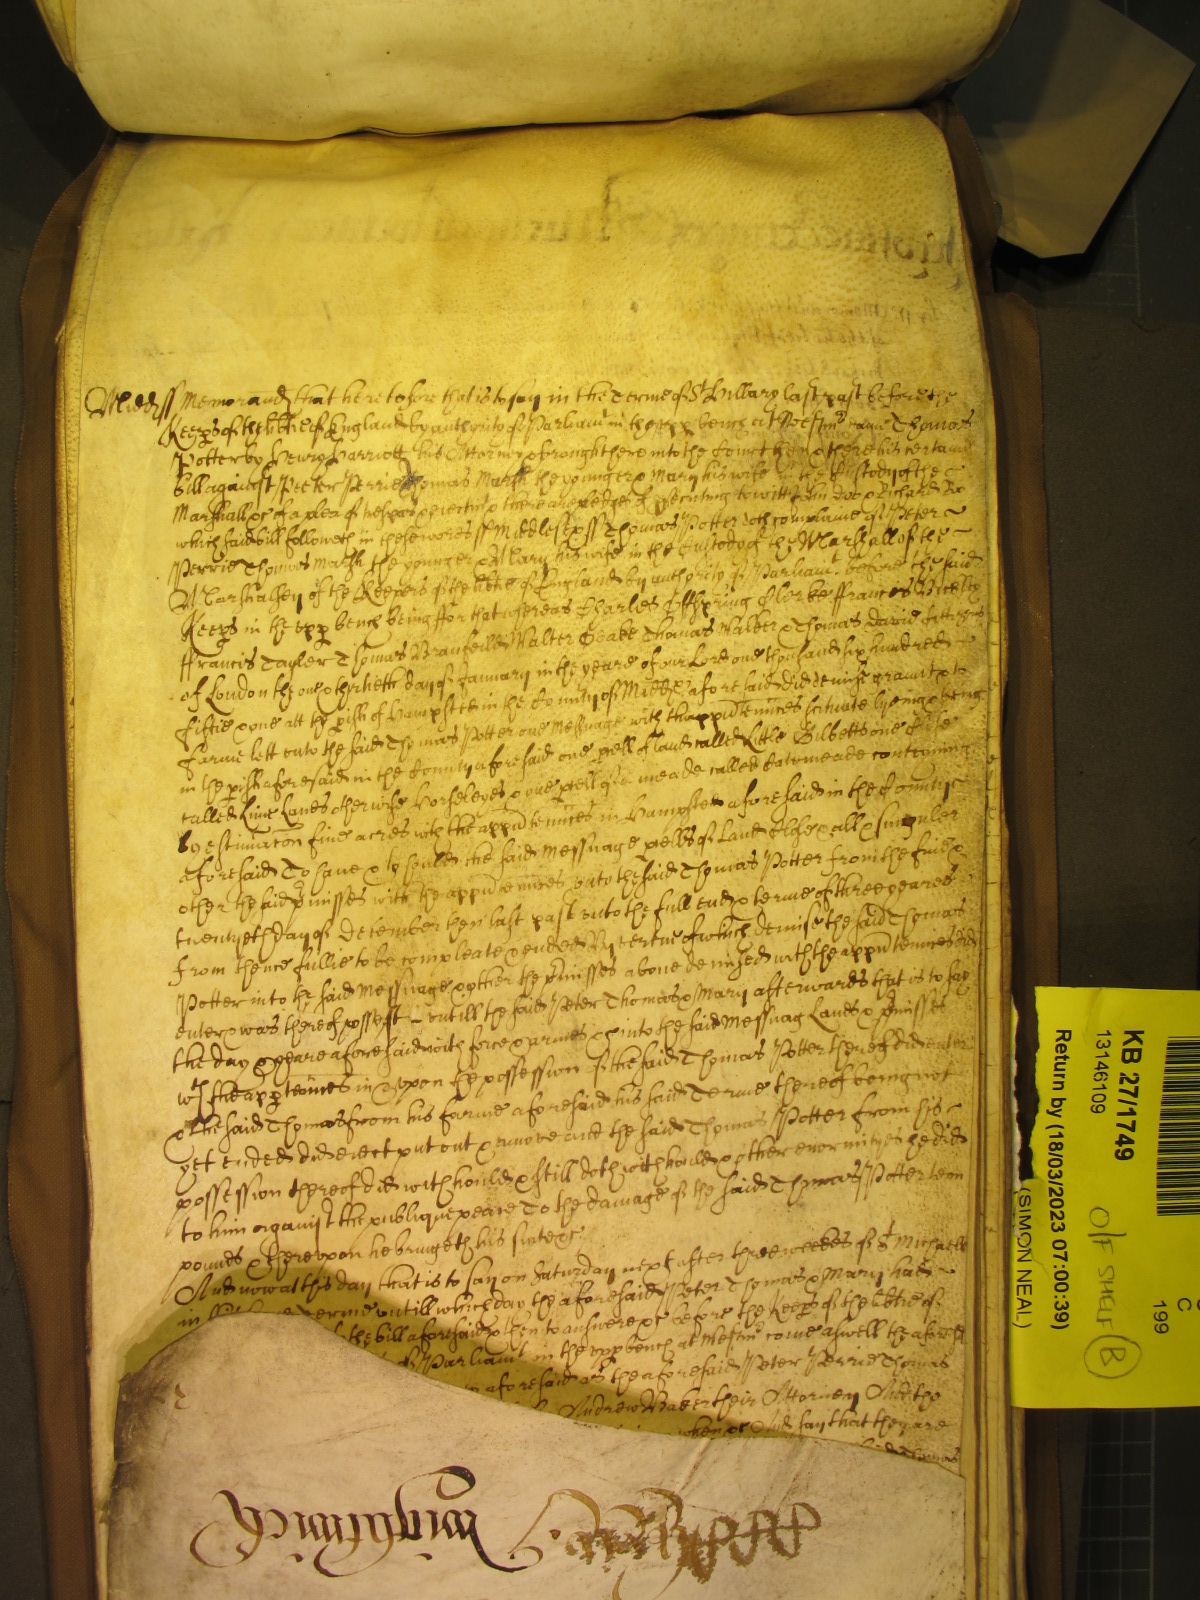 Midd ss Memorand that heretofore that is to say in the Terme of St Hillary last past before the
Keeps of the libtie of England by authority of Parliamt in the upp bench at Westm came Thomas
Potter by Henry Harriott his Attorney & brought here into the Court then & there his certaine
bill against Peeter Perrie Thomas Marsh the younger & Mary his wife in the Custody of the
Marshall &c of a plea of trespas & eiectmt & there are pledges of prosecuting to witt John Doe & Richard Roe
which said bill followeth in these wordes ss Middlesex ss Thomas Potter doth complaine of Peter
Perrie Thomas Marsh the younger & Mary his wife in the Custody of the Marshall of the
Marshalsey of the Keepers of the libtie of England by authority of Parliamt before the said
Keeps in the upp bench being ffor that whereas Charles Offspring Clerke ffrancis
ffrancis Tayler Thomas Walter Thomas Walker & Thomas David Cittizens
of London the one & thirtieth day of January in the yeare of our Lord one thousand six hundred
fiftie & one att the pish of Hampsted in the County of Middx aforesaid did demise graunt & to
farme lett unto the said Thomas Potter one Messuage with thappurtennces scituate lyeing & being
in the pish aforesaid in the County aforesaid one pcell of land called Little Gilbetts one Close
called Kine Lanes otherwise Horseleyes & one pcell of meade called meade conteininge
by estimacon five acres with the appurtennces in Hampsted aforesaid in the County
aforesaid To have & to hould the said Messuage pcells of Land Close & all & singuler
other the said pmisses with the appurtennces unto the said Thomas Potter from the five &
twentyeth day of December then last past unto the full end & terme of three yeares
from thence fullie to be compleate & ended By vertue of which demise the said Thomas
Potter into the said Messuage & other the pmisses above demised with the appurtennces did
enter & was thereof possest untill the said Peter Thomas & Mary afterwards that is to say
the day & yeare aforesaid with force & armes &c into the said Messuag Lands & pmisses
wth the appurtennces in & upon the possession of the said Thomas Potter thereof did enter
& the said Thomas from his farme aforesaid his said Terme thereof being not
yet ended did eiect put out & remove and the said Thomas Potter from his
possession thereof did withhould & still doth withhould & other enormityes he did
to him against the publique peace To the damage of the said Thomas Potter tenn
pounds & thereupon he bringeth his suite &c
And now at this day that is to say on Saturday next after three weekes of St Michaell
in this Terme untill which day the aforesaid Peter Thomas & Mary had
the bill aforesaid & then to answere &c before the Keeps of the libtie of
of Parliamt in the upp bench at Westm come aswell the aforesd
aforesaid as the aforesaid Peter Perrie Thomas
Andrew Baker their Attorney And the
when &c And say that they are
said Thomas
KB 27/1749
13146109
Return by (18/03/2023 07:00:39)
(SIMON NEAL)
O/F SHELF B
C
199